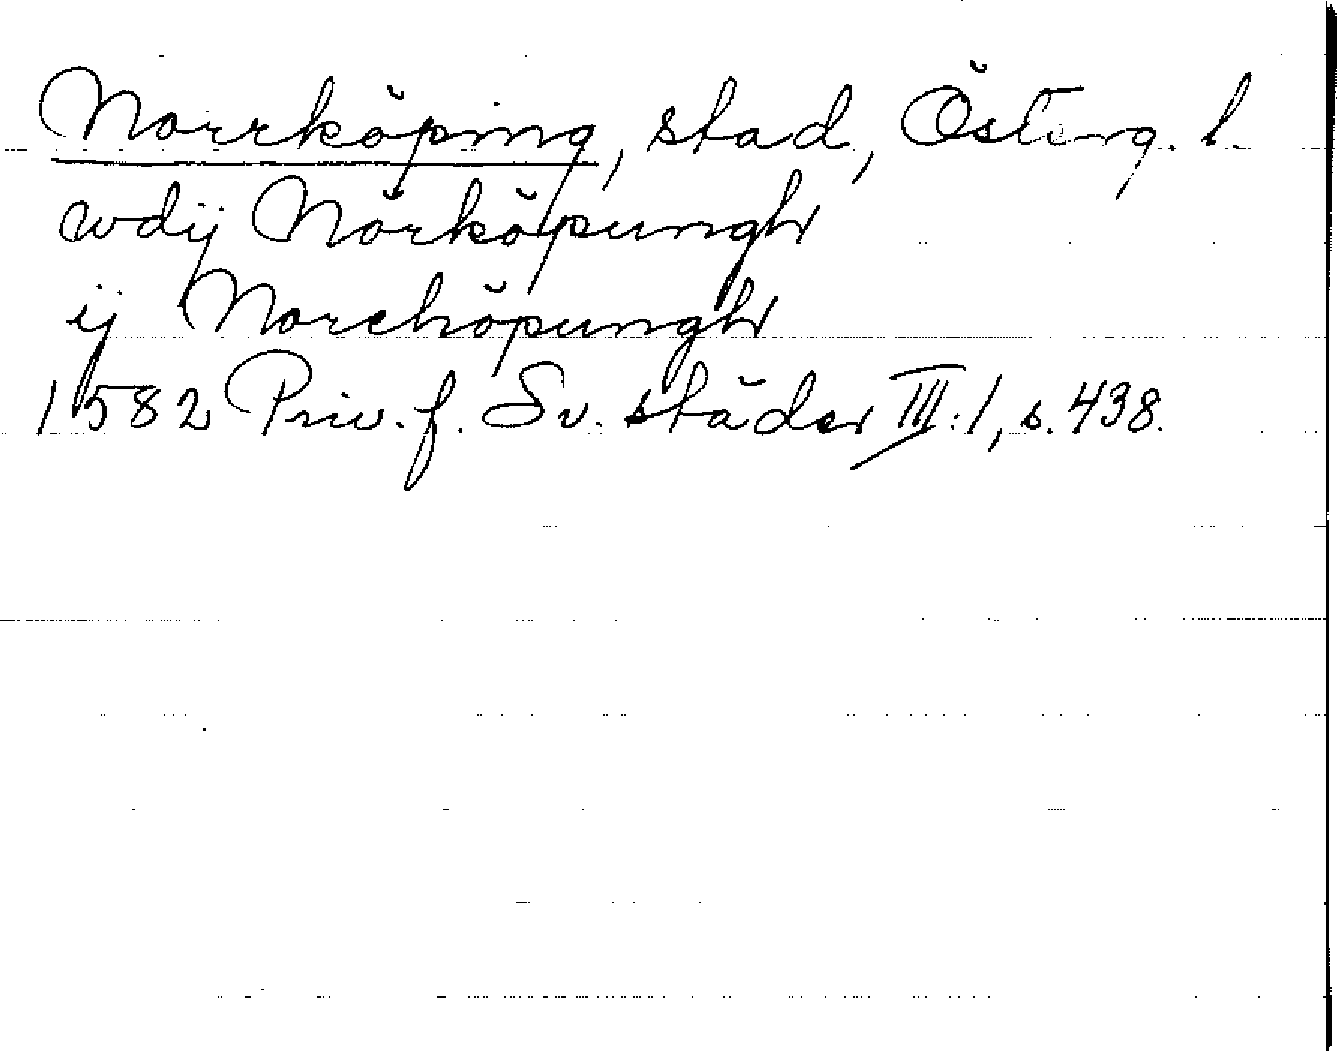 Norrköping, stad, Österg. l.
wdij Nörköpungh
ij Norchöpungh
1582 Priv. f. Sv. städer III:1, s. 438.